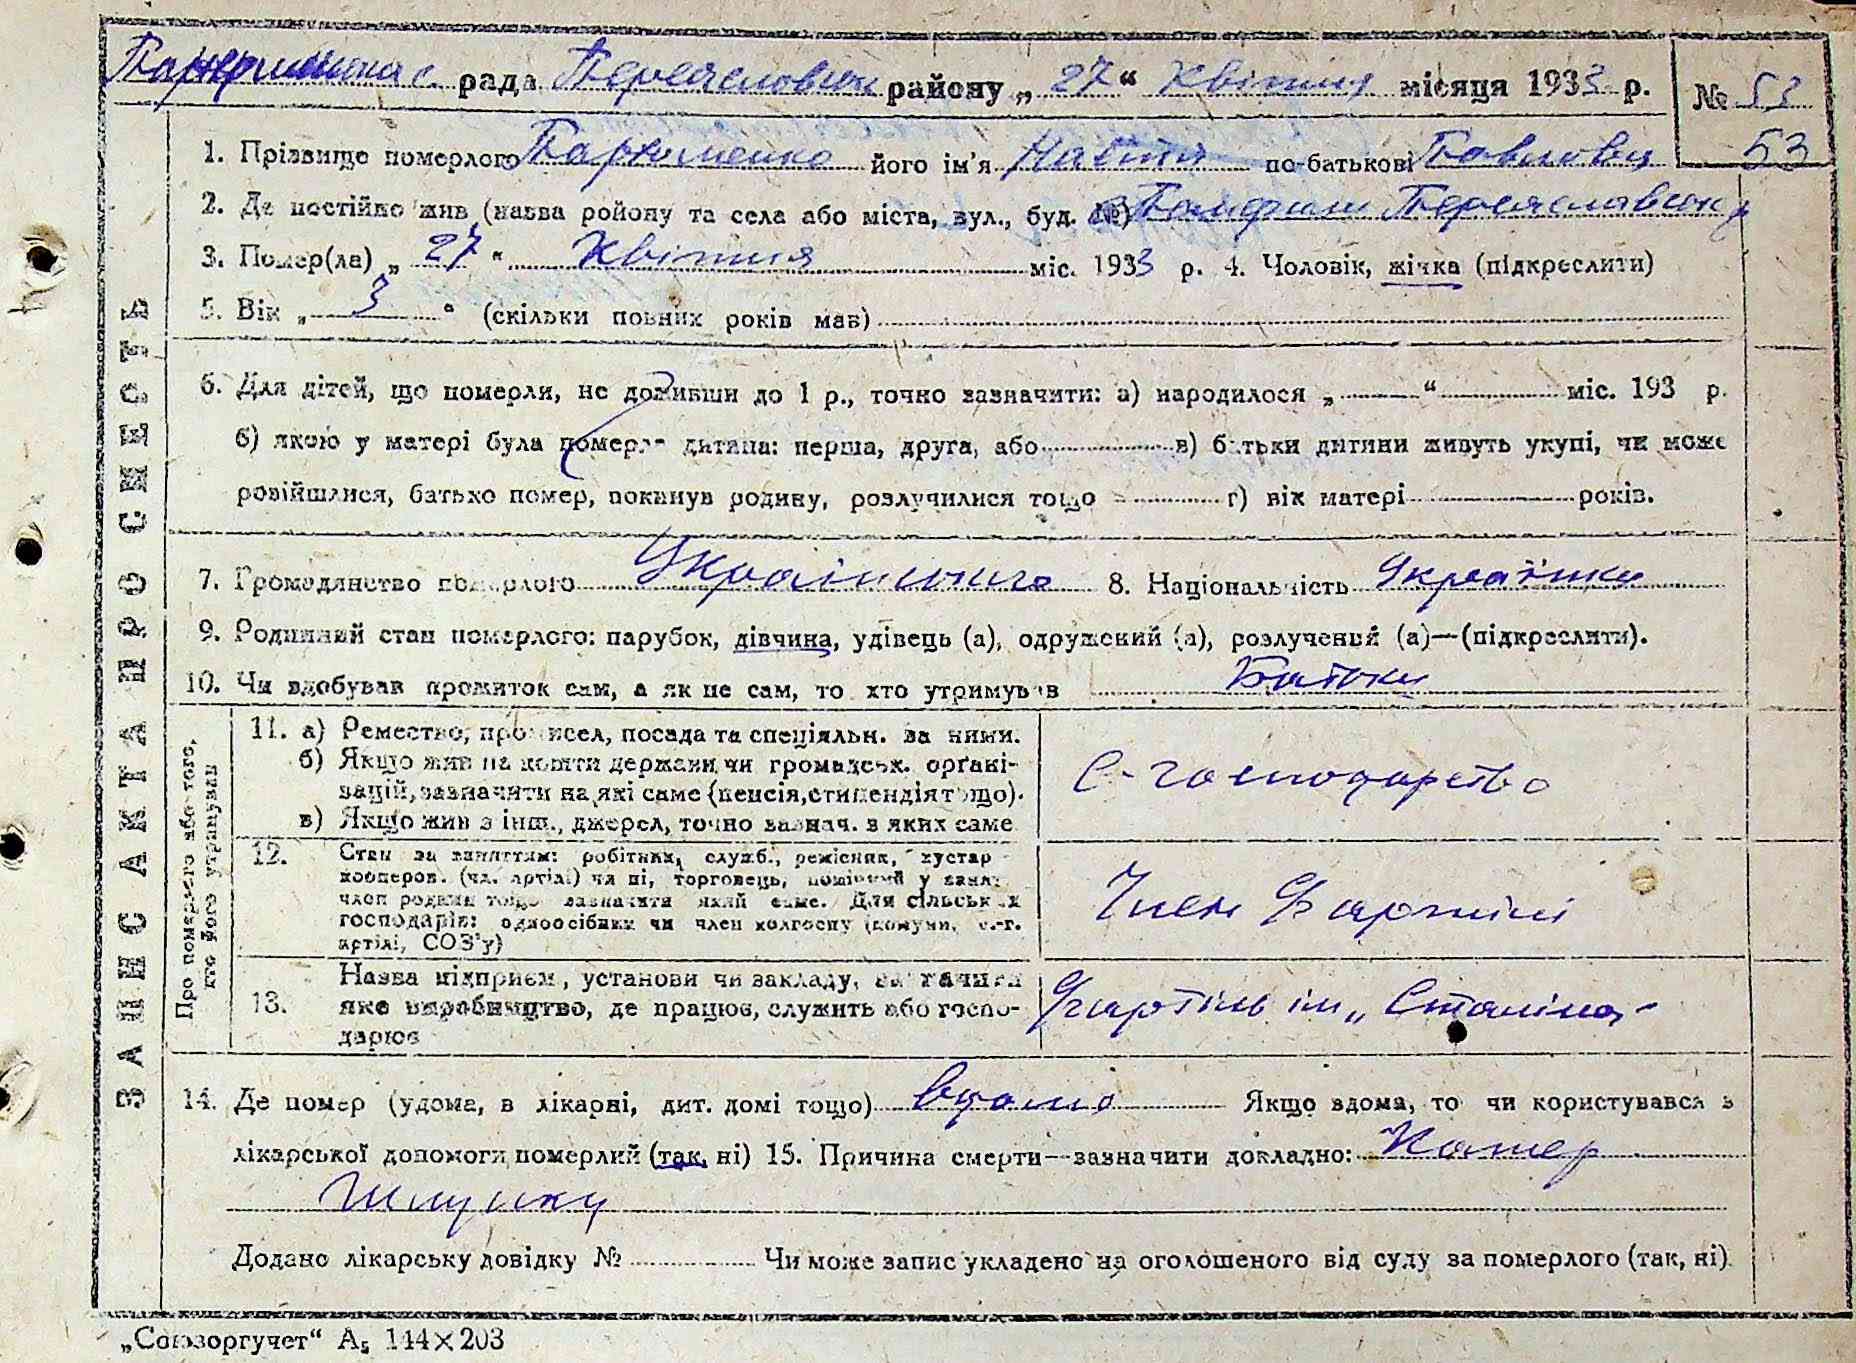 рада Переяславськ району „27“ Квітня місяця 1933 р. № 53
1. Прізвище померлого Пархоменко його ім'я Настя по-батькові Павловц 53
2. Де постійно жив (назва району та села або міста, вул., буд. №) Помфили Переяславськ р
3. Помер(ла) „27“ Квітня міс. 1933 р. 4. Чоловік, жінка (підкреслити)
5. Вік „3“ (скільки повних років мав)
6. Для дітей, що померли, не доживши до 1 р., точно зазначити: а) народилося „ “ міс. 193 р.
б) якою у матері була померла дитина: перша, друга, або в) батьки дитини живуть укупі, чи може
розійшлися, батько помер, покинув родину, розлучилися тощо г) вік матері років.
7. Громадянство померлого Українське 8. Національність Українка
9. Родинний стан померлого: парубок, дівчина, удівець (а), одружений (а), розлучений (а)—(підкреслити).
10. Чи здобував прожиток сам, а як не сам, то хто утримував Батьки
ЗАПИС АКТА ПРО СМЕРТЬ
Про померлого або того, хто його утримував
11. а) Ремество, промисел, посада та спеціяльн. за ними.
б) Якщо жив на кошти держави чи громадськ. органі-
зацій, зазначити на які саме (пенсія, стипендія тощо).
в) Якщо жив з інш., джерел, точно зазнач. з яких саме
С-господарство
12. Стан за заняттям: робітник, служб., ремісник, кустар
кооперов. (чл. артілі) чи ні, торговець, помічний у занят.
член родини тощо зазначити який саме. Для сільських
господарів: одноосібник чи член колгоспу (комуни, с.-г.
артілі, СОЗ'у)
Член Сгартілі
13. Назва підприєм, установи чи закладу, зазначити
яке виробництво, де працює, служить або госпо-
дарює
Сгартіль ім „Сталіна“
14. Де помер (удома, в лікарні, дит. домі тощо) вдома Якщо вдома, то чи користувався з
лікарської допомоги померлий (так, ні) 15. Причина смерти—зазначити докладно: Катер
Шлунку
Додано лікарську довідку № Чи може запис укладено на оголошеного від суду за померлого (так, ні)
„Союзоргучет“ А5 144×203